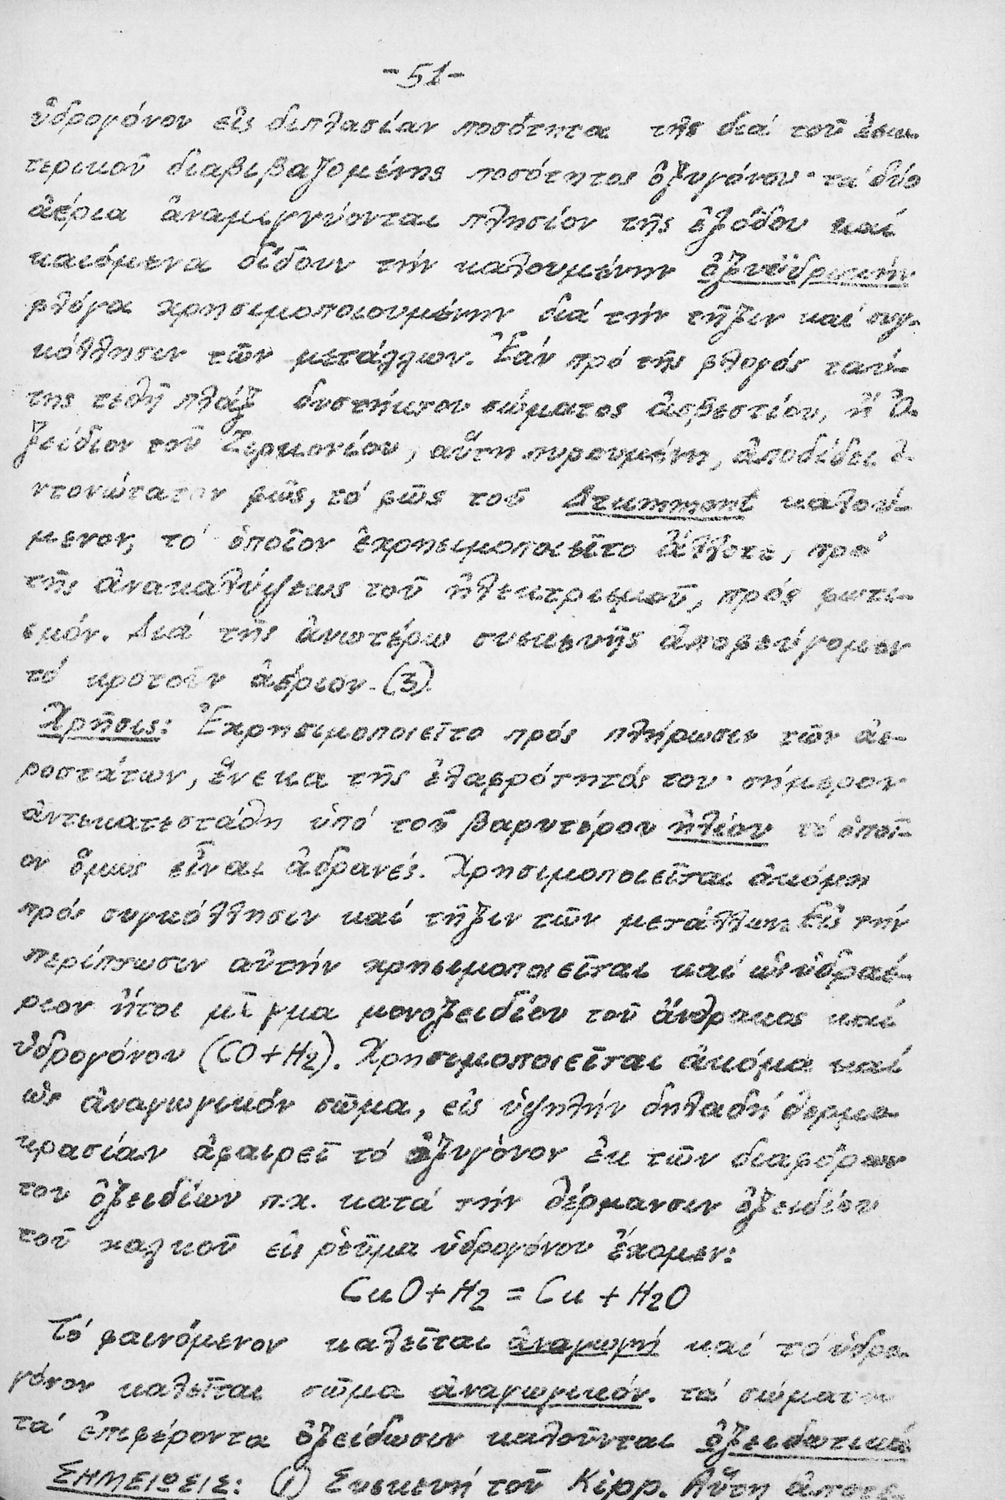 -51-
ὑδρογόνον εἰς διπλασίαν ποσότητα τῆς διά τοῦ ἐσω-
τερικοῦ διαβιβαζομένης ποσότητος ὀξυγόνου· τά δύο
ἀέρια ἀναμιγνύονται πλησίον τῆς ἐξόδου καί
καιόμενα δίδουν τήν καλουμένην ὀξυϋδρικήν
φλόγα χρησιμοποιουμένην διά τήν τῆξιν καί συγ-
κόλλησιν τῶν μετάλλων. Ἐάν πρό τῆς φλογός ταύ-
της τεθῆ πλάξ δυστήκτου σώματος ἀσβεστίου, ἤ ὀ-
ξείδιον τοῦ Ζιρκονίου, αὕτη πυρουμένη, ἀποδίδει ἐ-
ντονώτατον φῶς, τό φῶς τοῦ Drummont καλού-
μενον, τό ὁποῖον ἐχρησιμοποιεῖτο ἄλλοτε, πρό
τῆς ἀνακαλύψεως τοῦ ἠλεκτρισμοῦ, πρός φωτι-
σμόν. Διά τῆς ἀνωτέρω συσκευῆς ἀποφεύγομεν
τό κροτοῦν ἀέριον.(3)
Χρῆσις: Ἐχρησιμοποιεῖτο πρός πλήρωσιν τῶν ἀε-
ροστάτων, ἕνεκα τῆς ἐλαφρότητός του· σήμερον
ἀντεκατεστάθη ὑπό τοῦ βαρυτέρου ἡλίου τό ὁποῖ-
ον ὅμως εἶναι ἀδρανές. Χρησιμοποιεῖται ἀκόμη
πρός συγκόλλησιν καί τῆξιν τῶν μετάλλων. Εἰς τήν
περίπτωσιν αὐτήν χρησιμοποιεῖται καί ὡς ὑδραέ-
ριον ἤτοι μῖγμα μονοξειδίου τοῦ ἄνθρακος καί
ὑδρογόνου (CO+H2). Χρησιμοποιεῖται ἀκόμα καί
ὡς ἀναγωγικόν σῶμα, εἰς ὑψηλήν δηλαδή θερμο
κρασίαν ἀφαιρεῖ τό ὀξυγόνον ἐκ τῶν διαφόρων
του ὀξειδίων π.χ. κατά τήν θέρμανσιν ὀξειδίου
τοῦ χαλκοῦ εἰς ρεῦμα ὑδρογόνου ἔχομεν:
CuO+H2 = Cu + H2O
Τό φαινόμενον καλεῖται ἀναγωγή καί τό ὑδρο-
γόνον καλεῖται σῶμα ἀναγωγικόν. τά σώματα
τά ἐπιφέροντα ὀξείδωσιν καλοῦνται ὀξειδωτικά
ΣΗΜΕΙΩΣΕΙΣ: (1) Συσκευή τοῦ Κίρρ. Αὕτη ἀποτε-